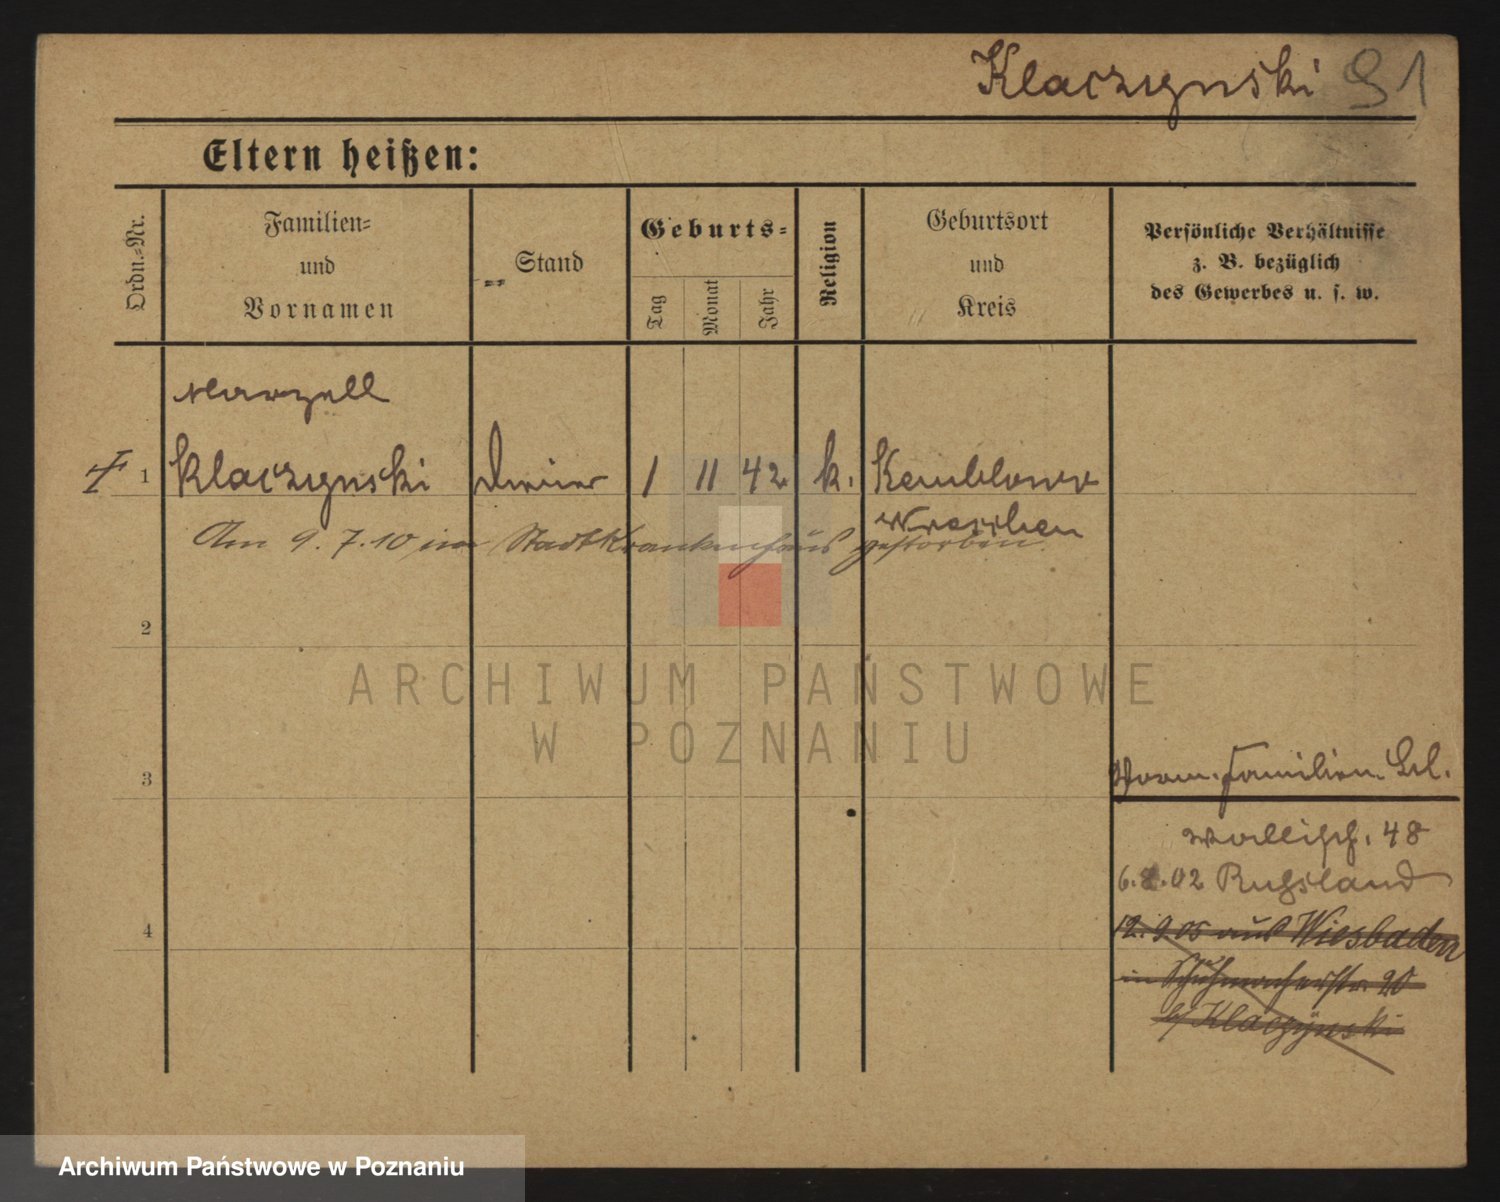 Klaczynski 91
Eltern heißen:
Ordn.-Nr.
Familien-
und
Vornamen
Stand
Geburts-
Tag
Monat
Jahr
Religion
Geburtsort
und
Kreis
Persönliche Verhältnisse
z. B. bezüglich
des Gewerbes u. s. w.
Marzell
1 Klaczynski Diener 1 11 42 k. Kemblowo
Wreschen
Am 9. 7. 10 im Stadtkrankenhaus gestorben
2
ARCHIWUM PAŃSTWOWE
W POZNANIU
3
Familien
Wallisch. 48
6. 8. 02 Rußland
4
12. 9. 05 aus Wiesbaden
in Schuhmacherstr. 20
b/ Klaczynski
Archiwum Państwowe w Poznaniu